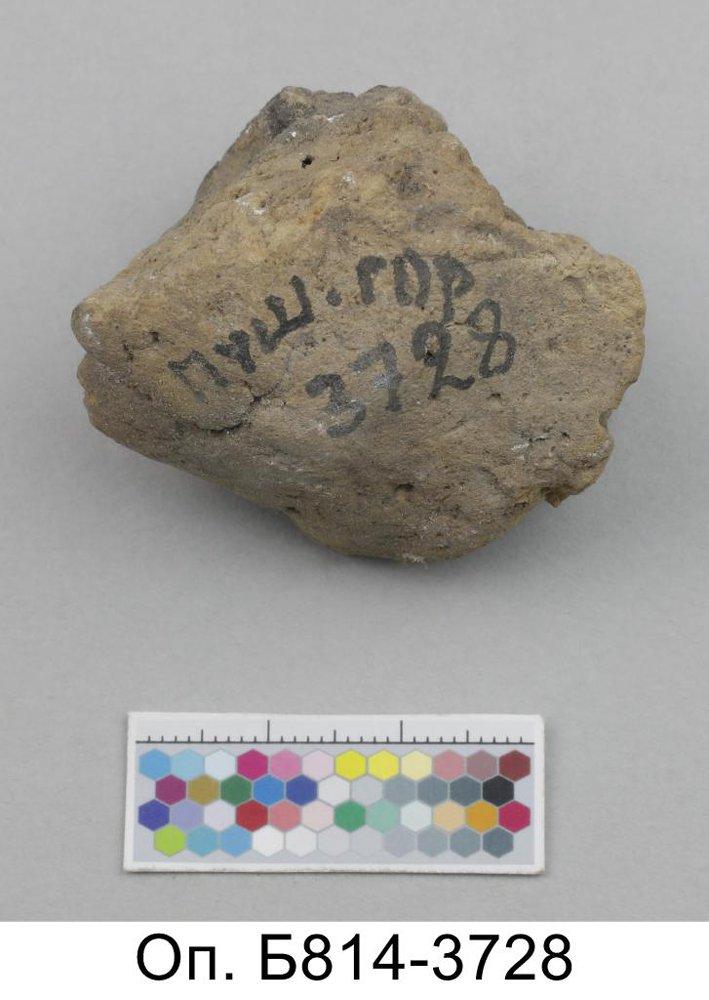 пуш. гор
3728
Оп. Б814-3728